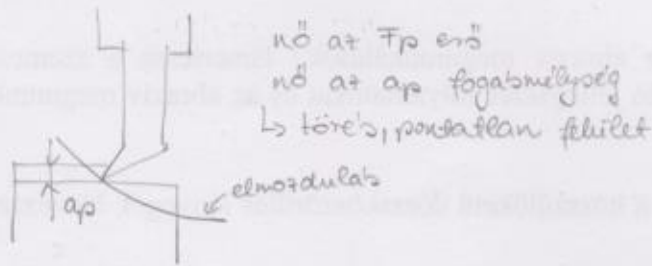 nő az Fp erő
nő az ap fogásmélység
↳ törés, pontatlan felület
elmozdulás
ap